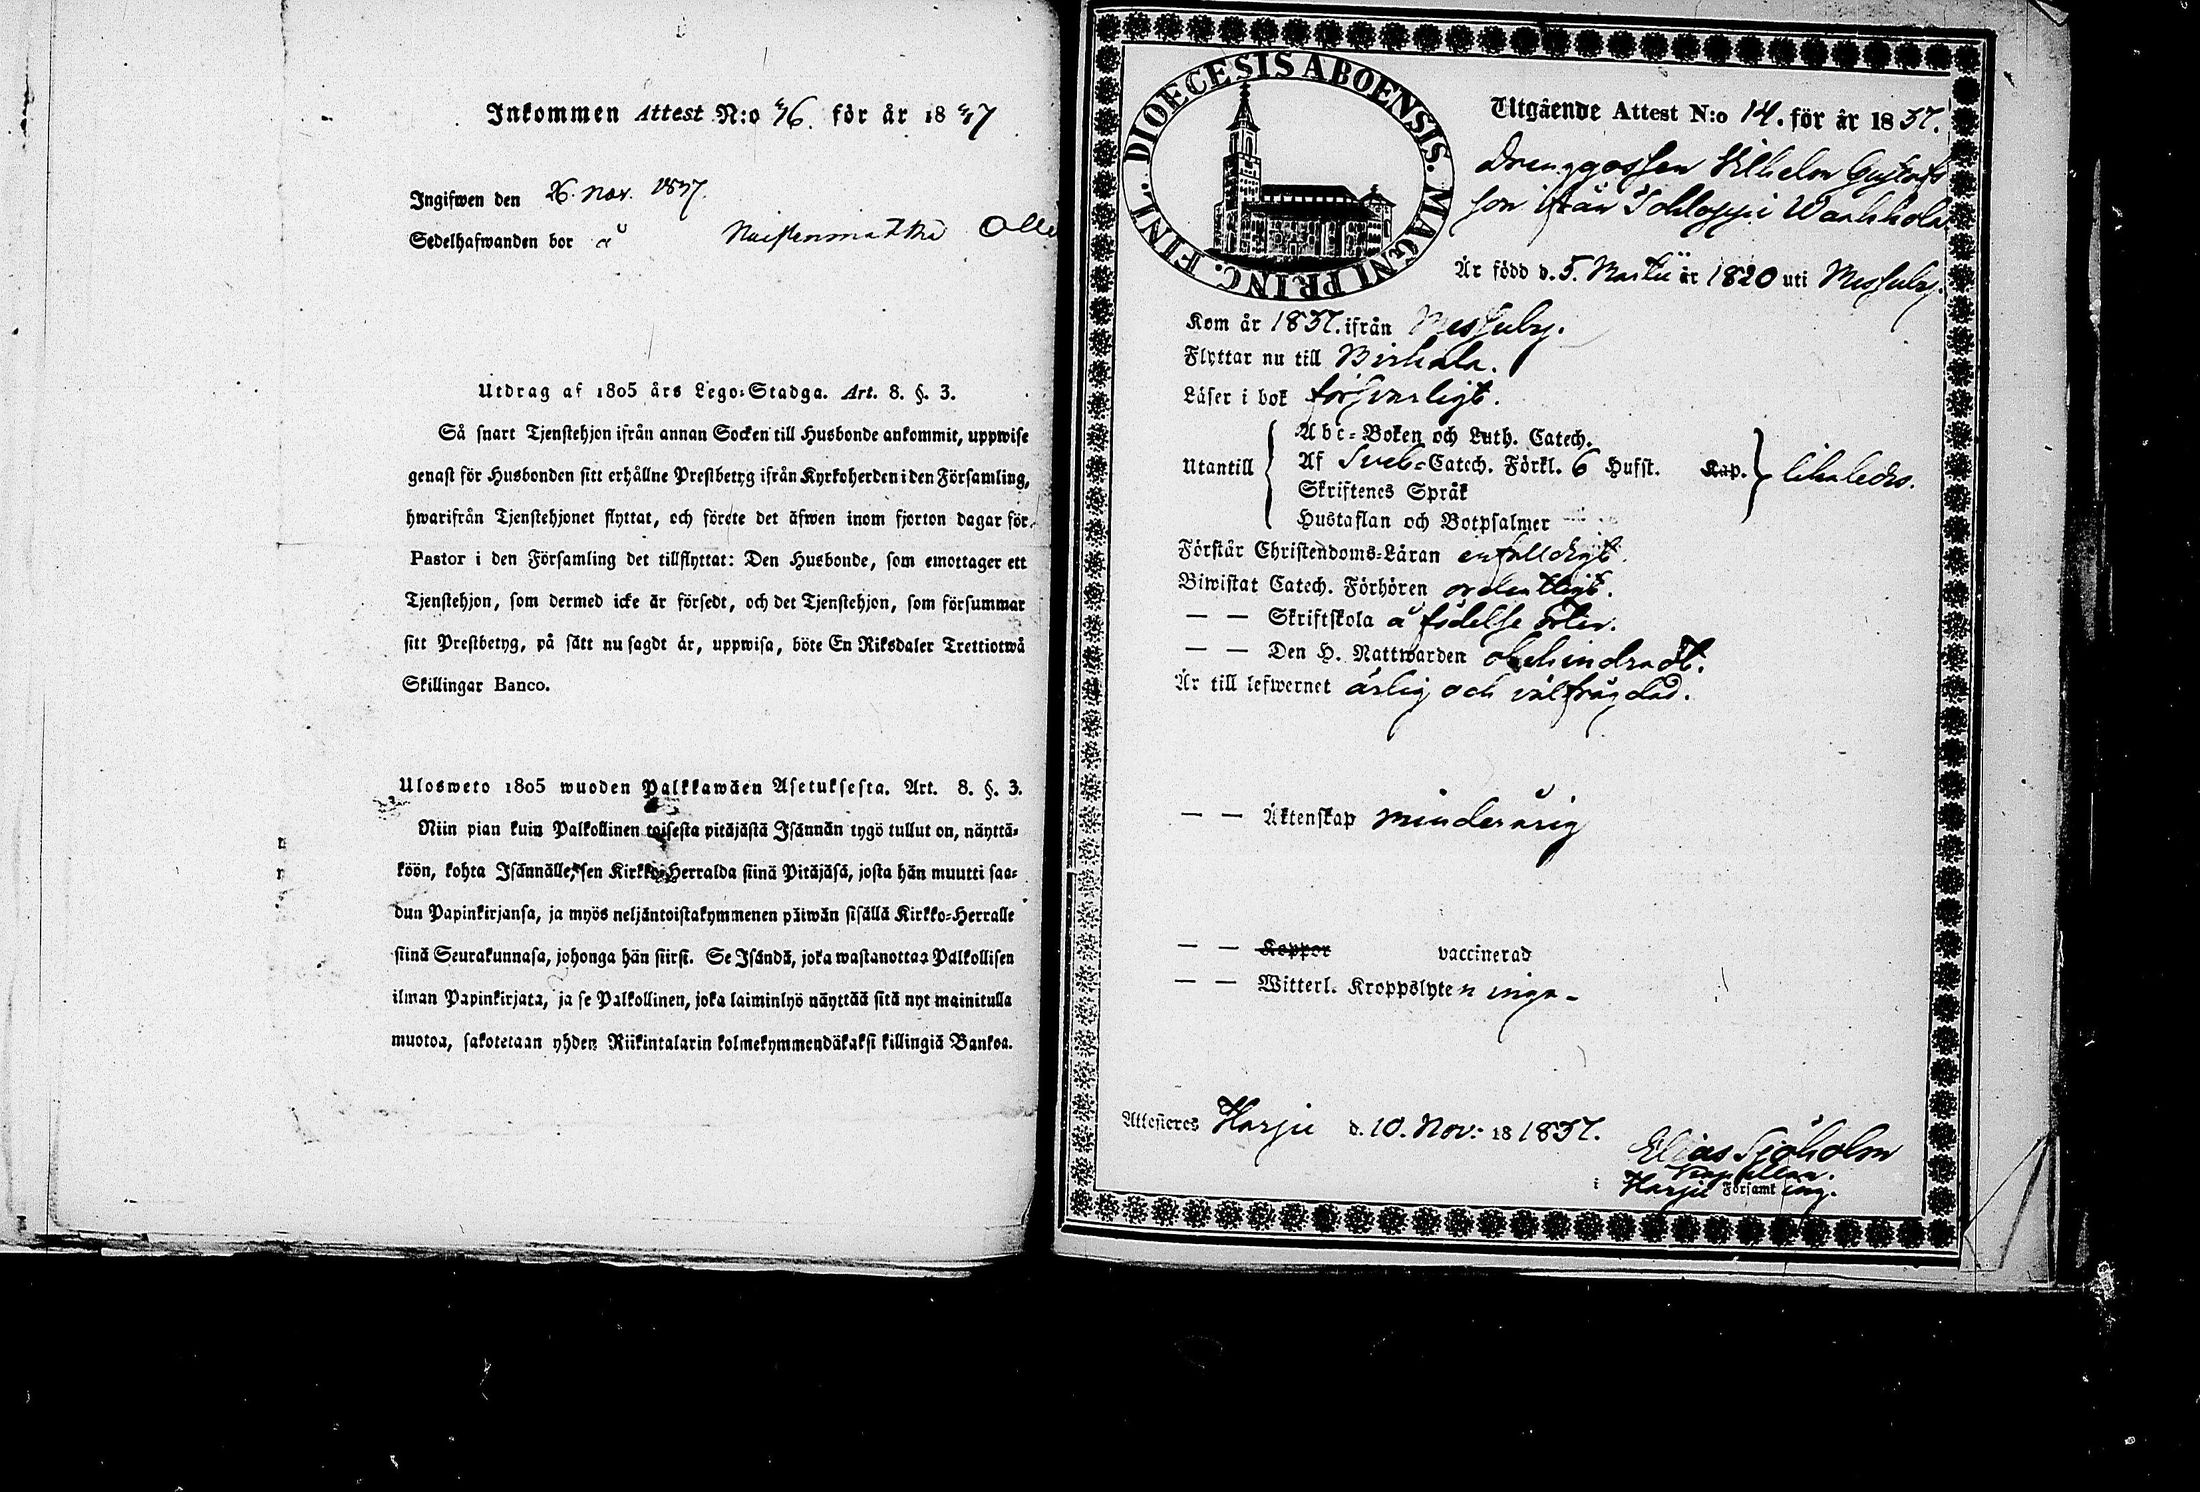 Inkommen Attest N:o 46. för år 1837
Ingifwen den 26. Nov. 1837.
Sedelhafwanden bor å Naistenmatka Olli
Utdrag af 1805 års Lego-Stadga. Art. 8. §. 3.
Så snart Tjenstehjon ifrån annan Socken till Husbonde ankommit, uppwise
genast för Husbonden sitt erhållne Prestbetyg ifrån Kyrkoherden i den Församling,
hwarifrån Tjenstehjonet flyttat, och förete det äfwen inom fjorton dagar för
Pastor i den Församling det tillflyttat: Den Husbonde, som emottager ett
Tjenstehjon, som dermed icke är försedt, och det Tjenstehjon, som försummar
sitt Prestbetyg, på sätt nu sagdt är, uppwisa, böte En Riksdaler Trettiotwå
Skillingar Banco.
Ulosweto 1805 wuoden Palkkawäen Asetuksesta. Art. 8. §. 3.
Niin pian kuin Palkollinen toisesta pitäjästä Isännän tygö tullut on, näyttä-
köön, kohta Isännälle, sen Kirkko-Herralda siinä Pitäjäsä, josta hän muutti saa-
dun Papinkirjansa, ja myös neljäntoistakymmenen päiwän sisällä Kirkko-Herralle
siinä Seurakunnasa, johonga hän siirsi. Se Isändä, joka wastanottaa Palkollisen
ilman Papinkirjata, ja se Palkollinen, joka laiminlyö näyttää sitä nyt mainitulla
muotoa, sakotetaan yhden Riikintalarin kolmekymmendäkaksi killingiä Bankoa.
DIOECESIS ABOENSIS. MAGNI PRINC. FINL.
Utgående Attest N:o 14. för år 1837.
Drenggossen Wilhelm Gustafs
son ifrån Tohloppi Waahkola
Är född d. 5. Martii år 1820 uti Messuby.
Kom år 1837. ifrån Messuby.
Flyttar nu till Birkala.
Läser i bok försvarligt.
Abc-Boken och Luth. Catech.
Utantill Af Sveb. Catech. Förkl. 6 Hufst. Kap. likaledes.
Skriftenes Språk
Hustaflan och Botpsalmer
Förstår Christendoms-Läran enfalldigt.
Biwistat Catech. Förhören ordentligt.
— — Skriftskola å födelse orten.
— — Den H. Nattwarden obehindradt.
Är till lefwernet ärlig och välfrägdad.
— — Äktenskap minderårig
— — Koppor vaccinerad
— — Witterl. Kroppslyten inga -
Attesteres Harju d. 10. Nov: 18 1837.
Elias Sjöholm
Kapellan.
i Harju Församling.